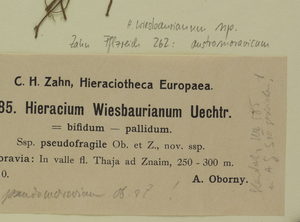 H. Wiesbaurianum ssp.
Zahn Pflzreich 262: austromoravicum
C. H. Zahn, Hieraciotheca Europaea.
85. Hieracium Wiesbaurianum Uechtr.
= bifidum — pallidum.
Ssp. pseudofragile Ob. et Z., nov. ssp.
oravia: In valle fl. Thaja ad Znaim, 250 - 300 m.
0. A. Oborny.